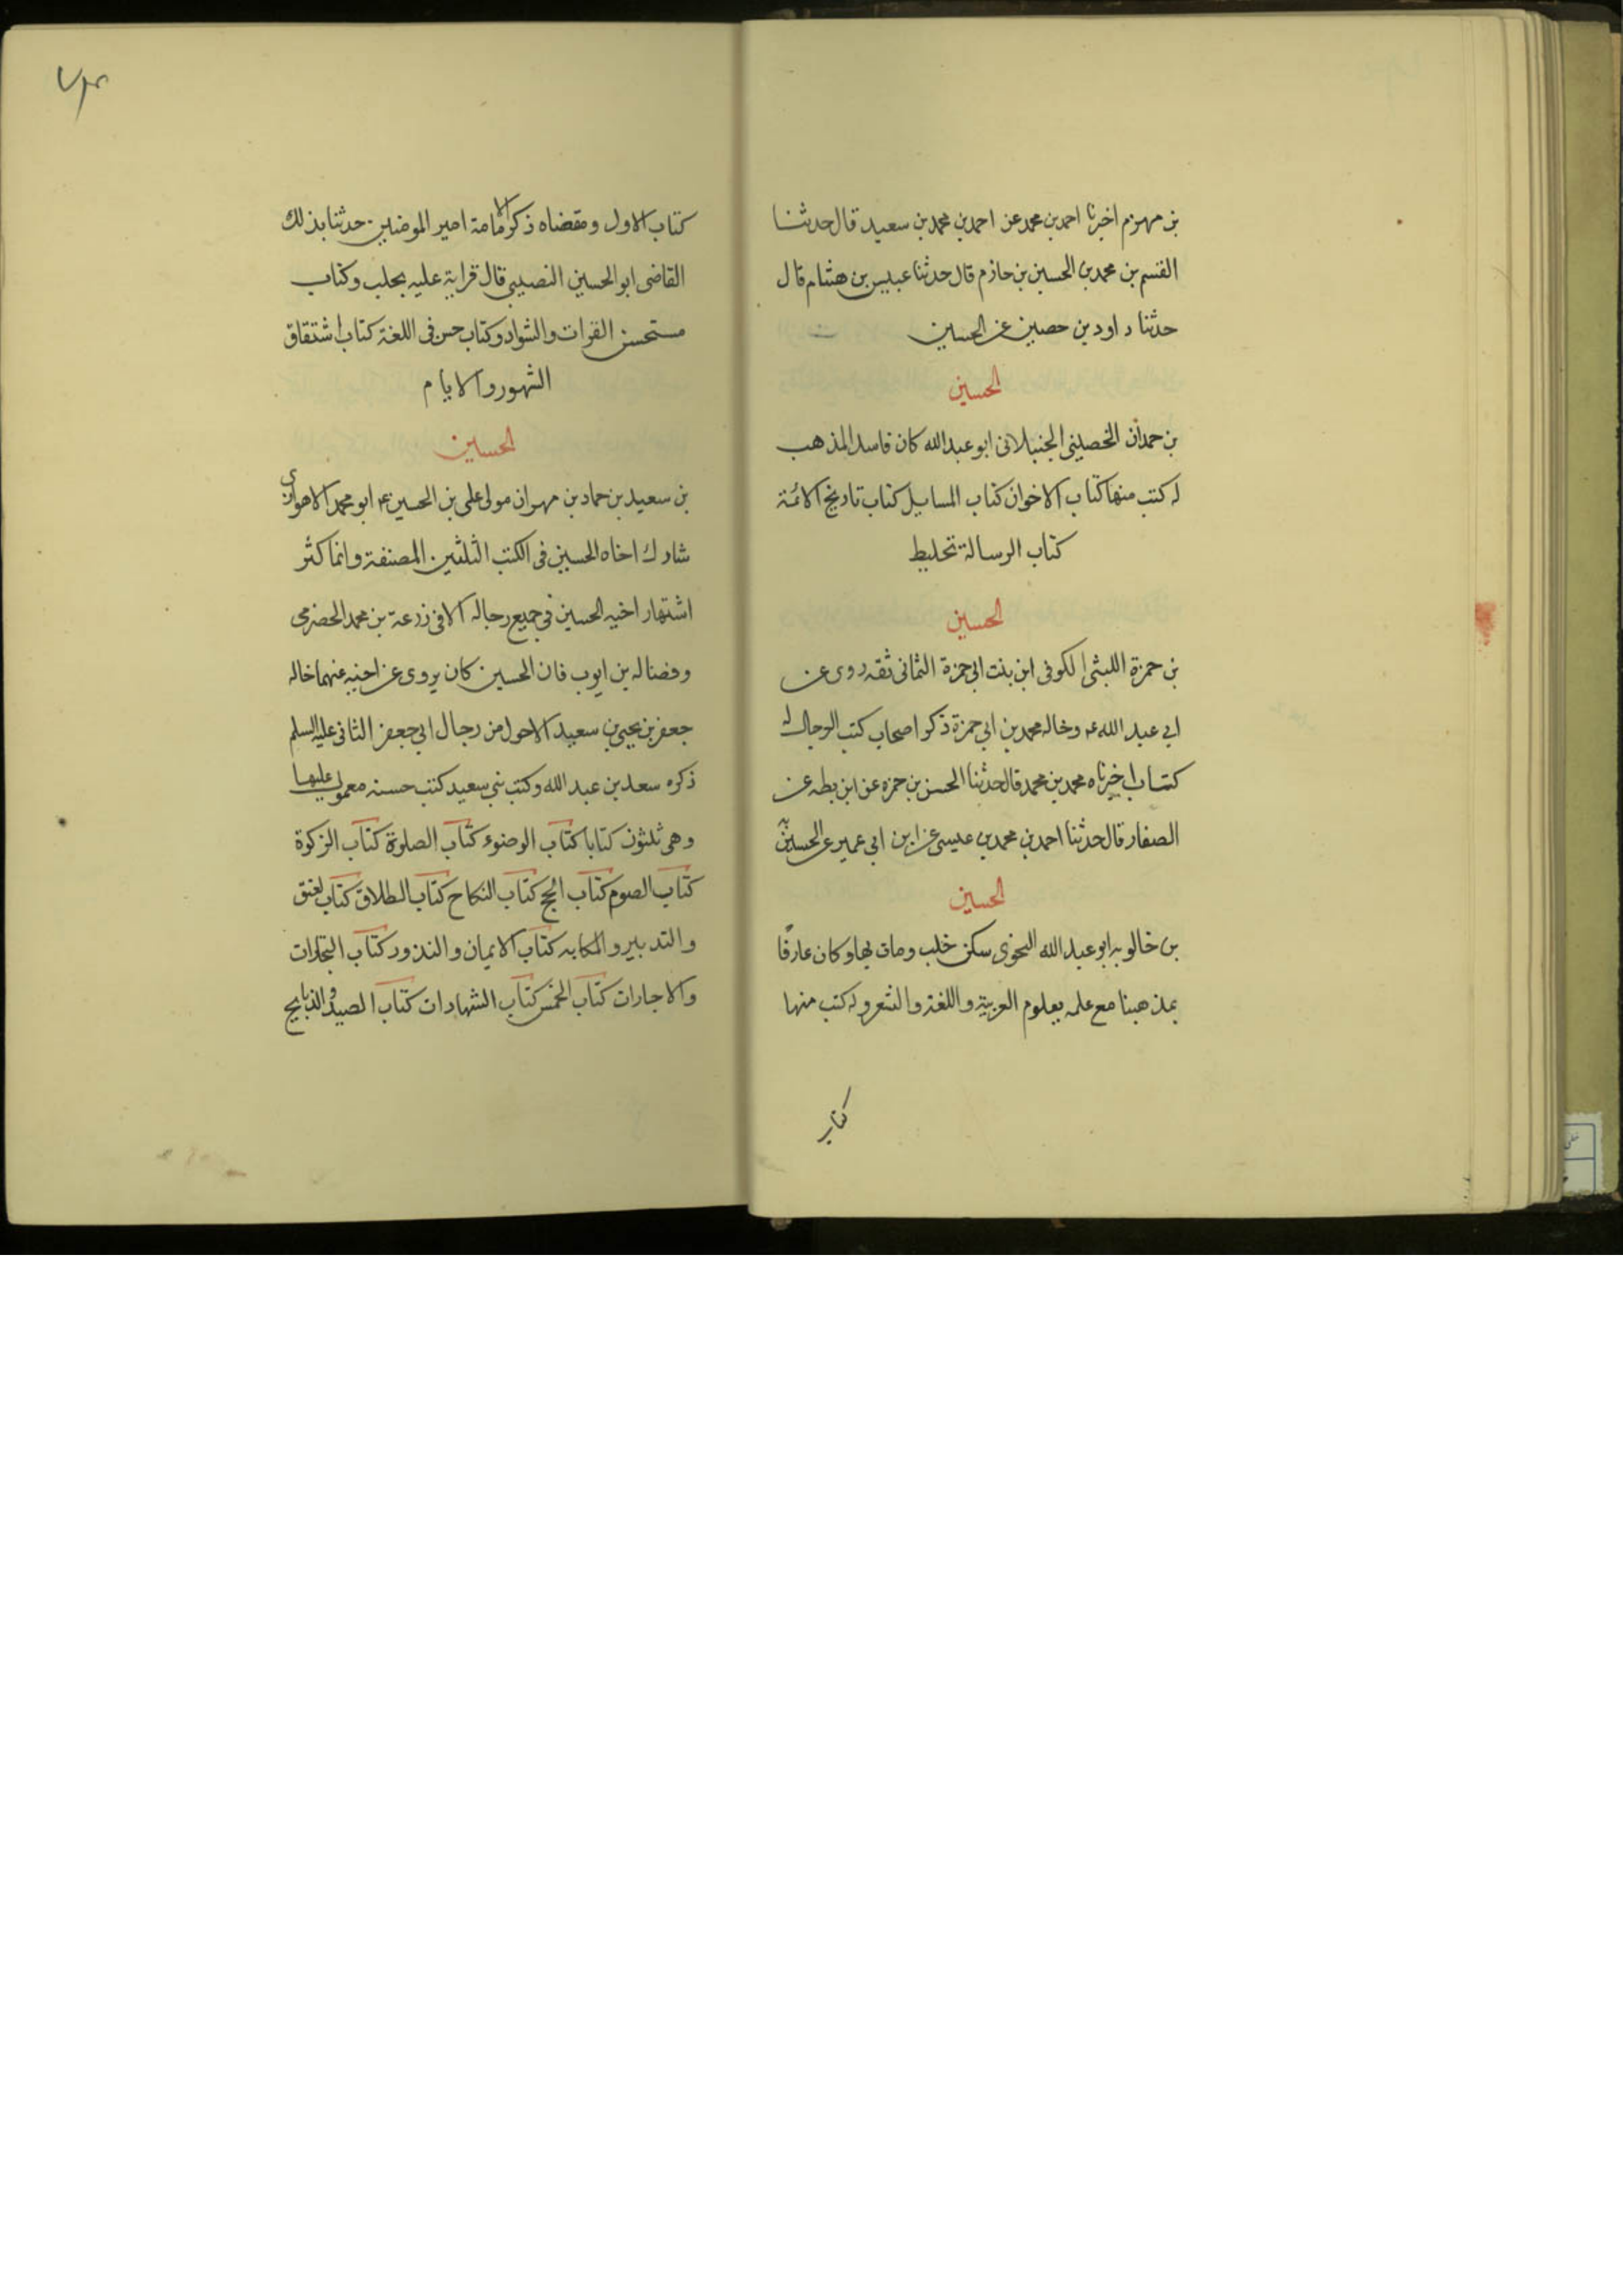 بن مهزم اخبرنا احمد بن محمد عن احمد بن محمد بن سعيد قال حدثنا
القسم بن محمد بن الحسين بن حازم قال حدثنا عبيس بن هشام قال
حدثنا داود بن حصين عن الحسين
الحسين
بن حمدان الخصيني الجنبلانى ابو عبدالله كان فاسد المذهب
له كتب منها كتاب الاخوان كتاب المسايل كتاب تاريخ الائمة
كتاب الرسالة تخليط
الحسين
بن حمزة الليثى الكوفى ابن بنت ابى حمزة الثمانى ثقه روى عن
ابى عبد الله ع وخاله محمد بن ابى حمزة ذكر اصحاب كتب الرجال له
كتاب اخبرناه محمد بن محمد قال حدثنا الحسن بن حمزه عن ابن بطه عن
الصفار قال حدثنا احمد بن محمد بن عيسى عن ابن ابى عمير عن الحسين به
الحسين
بن خالويه ابو عبد الله النحوى سكن حلب ومات بها وكان عارفًا
بمذهبنا مع علمه بعلوم العربية واللغة والشعر وله كتب منها
كتاب
كتاب الاول ومقتضاه ذكر الامامة امير المومنين حدثنا بذلك
القاضى ابو الحسين النصيبى قال قراته عليه بحلب وكتاب
مستحسن القرات والشواذ وكتاب حسن فى اللغة كتاب اشتقاق
الشهور والايام
الحسين
بن سعيد بن حماد بن مهران مولى على بن الحسين ع ابو محمد الاهوازى
شارك اخاه الحسين فى الكتب الثلثين المصنفة وانما كثر
اشتهار اخيه الحسين فى جميع رجاله الا فى زرعة بن محمد الحضرمى
وفضاله بن ايوب فان الحسين كان يروى عن اخيه عنهما خاله
جعفر بن يحيى بن سعيد الاحول من رجال ابى جعفر الثانى عليه السلم
ذكره سعد بن عبد الله وكتب بنى سعيد كتب حسنه معمول عليها
وهى ثلثون كتابا كتاب الوضوء كتاب الصلوة كتاب الزكوة
كتاب الصوم كتاب الحج كتاب النكاح كتاب الطلاق كتاب العتق
والتدبير والمكاتبه كتاب الايمان والنذور كتاب التجارات
والاجارات كتاب الخمس كتاب الشهادات كتاب الصيد والذبايح